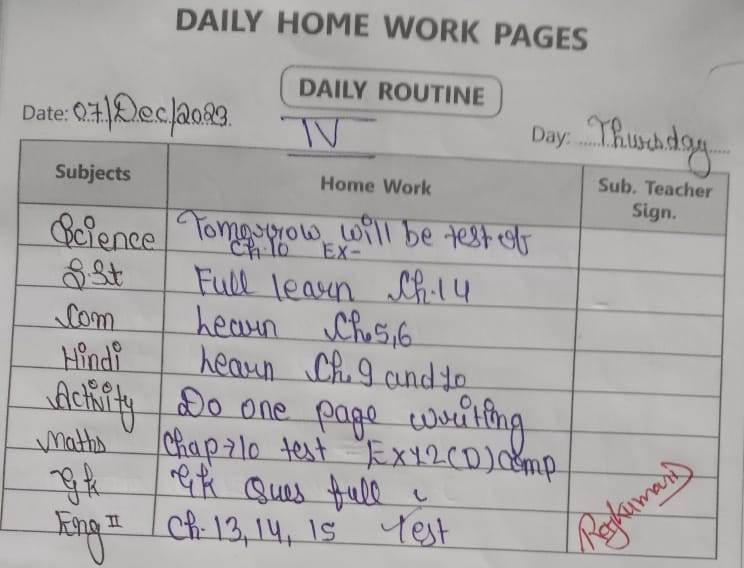 DAILY HOME WORK PAGES
DAILY ROUTINE
Date: 07/Dec/2023
IV
Day: Thursday
Subjects Home Work Sub. Teacher Sign.
Science Tomorrow will be test of
Ch.10 Ex-
S.St Full learn Ch.14
Com Learn Ch.5,6
Hindi Learn Ch.9 and 10
Activity Do one page writing
Maths Chap→10 test Ex12(D) comp
Gk Gk Ques full
Eng II Ch. 13, 14, 15 Test
Rajkumari